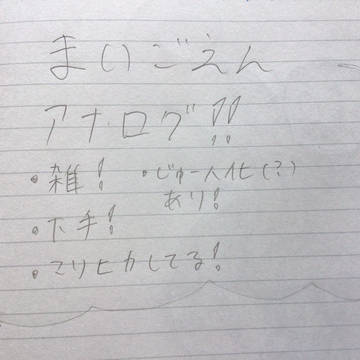 まいごえん
アナログ!!
・雑!
・じゅー人化(?)
あり!
・下手!
してる!